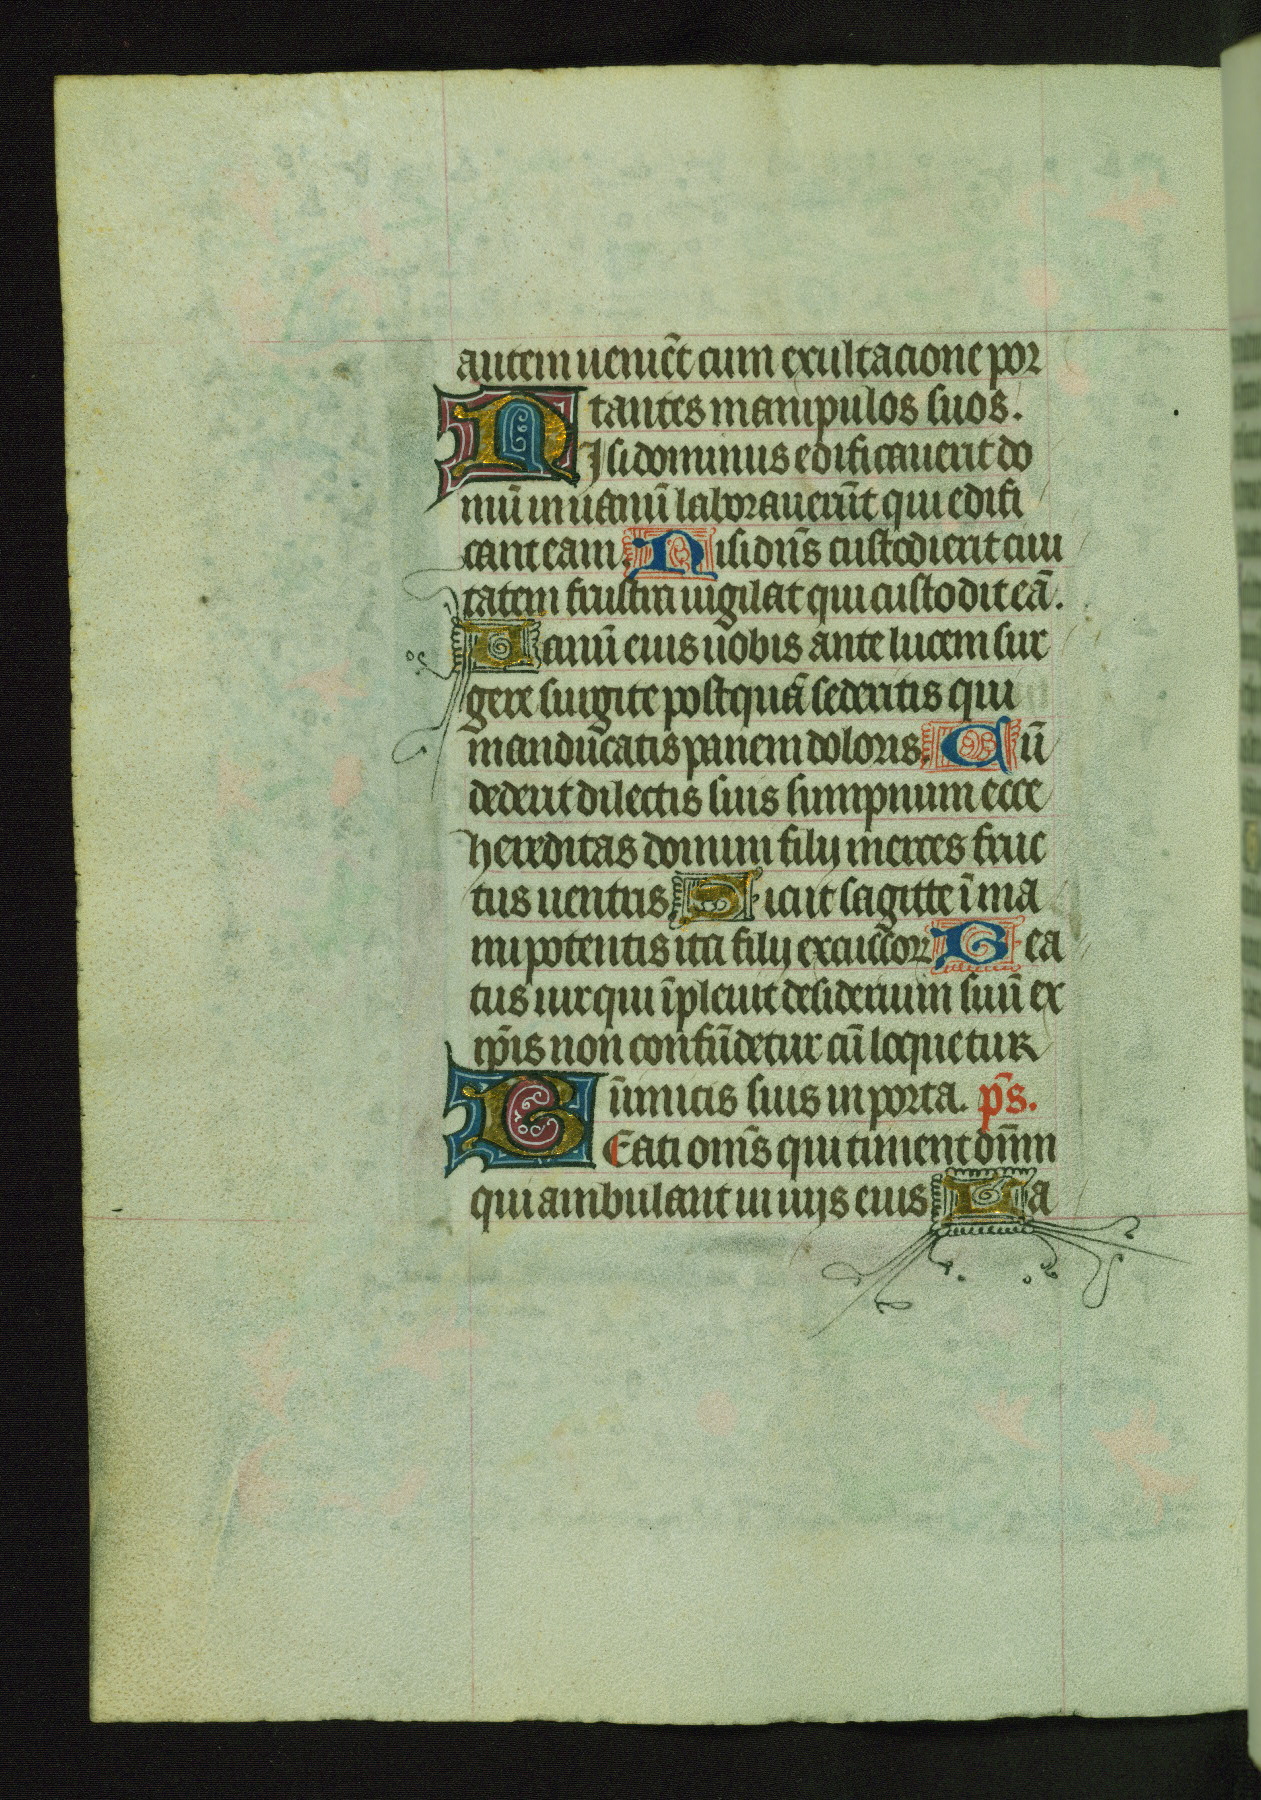 autem ueniēt cum exultacione por
tantes manipulos suos.
NIsi dominus edificauerit do
mū in uanū laborauerūt qui edifi
cant eam. Nisi dn̄s custodierit ciui
tatem frustra uigilat qui custodit eā.
Uanū ē uobis ante lucem sur
gere surgite postquā sederitis qui
manducatis panem doloris. Cū
dederit dilectis suis sumpnum ecce
hereditas domini filij merces fruc
tus uentris. Sicut sagitte ī ma
nu potentis ita filij excussor. Bea
tus uir qui īpleuit desiderium suū ex
ip̄is non confūdetur cū loquetur
inimicis suis in porta. p̄s.
BEati om̄s qui timent dn̄m
qui ambulant in uijs eius. La